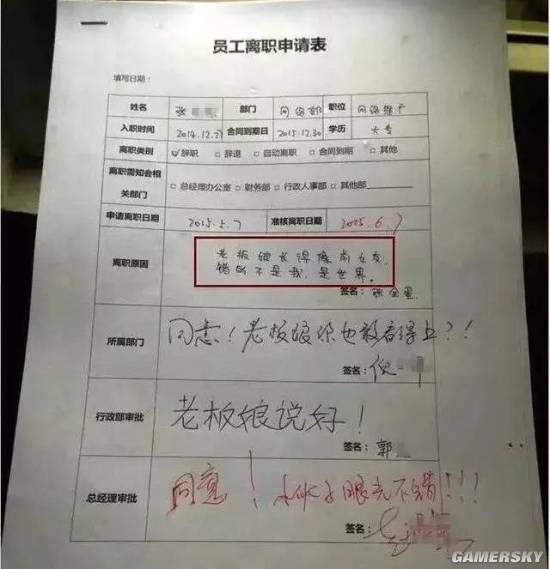 员工离职申请表
填写日期：
姓名 张 部门 网络部 职位 网络推广
入职时间 2014.12.31 合同到期日 2015.12.30 学历 大专
离职类别 ☑辞职 □辞退 □自动离职 □合同到期 □其他
离职需知会相关部门 □总经理办公室 □财务部 □行政人事部 □其他部
申请离职日期 2015.5.7 准核离职日期 2015.6.7
离职原因
老板娘长得像前女友，
错的不是我，是世界。
签名：张全蛋
所属部门
同志！老板娘你也敢看得上？！！
签名：倪
行政部审批
老板娘说好！
签名：郭
总经理审批
同意！小伙子眼光不错！！！
签名：
GAMERSKY